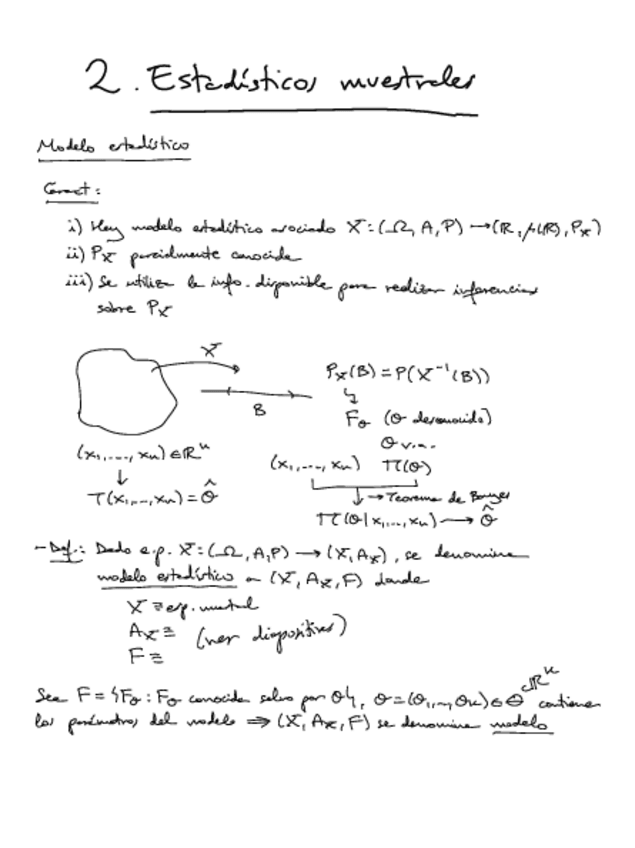 2. Estadísticos muestrales
Modelo estadístico
Caract:
i) Hay modelo estadístico asociado X:(Ω, A, P) → (ℝ, β(ℝ), Pₓ)
ii) Pₓ parcialmente conocida
iii) Se utiliza la info. disponible para realizar inferencias
sobre Pₓ
X
Pₓ(B) = P(X⁻¹(B))
B
F_θ (θ desconocido)
θ v.a.
(x₁,...,xₙ) ∈ ℝⁿ
(x₁,...,xₙ) π(θ)
T(x₁,...,xₙ) = θ̂
→ Teorema de Bayes
π(θ|x₁,...,xₙ) → θ̂
- Def.: Dado e.p. X:(Ω, A, P) → (X, Aₓ), se denomina
modelo estadístico a (X, Aₓ, F) donde
X ≡ esp. muestral
Aₓ ≡ (ver diapositivas)
F ≡
Sea F = {F_θ : F_θ conocida salvo por θ}, θ = (θ₁,...,θₖ) ∈ Θ ⊂ ℝᵏ contienen
los parámetros del modelo ⇒ (X, Aₓ, F) se denomina modelo